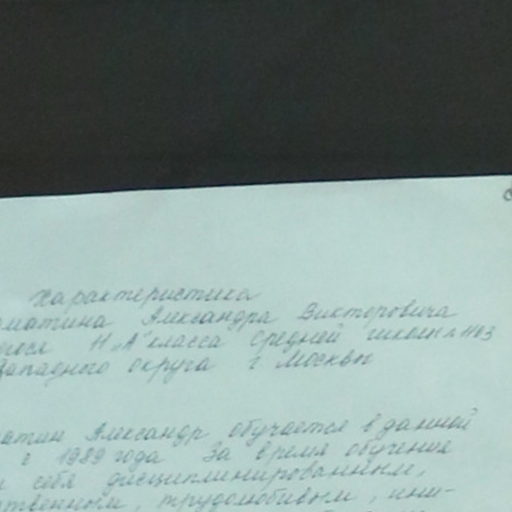 Характеристика
Александра Викторовича
11 "А" класса средней школы № 1163
Западного округа г Москвы
Александр обучается в данной
с 1989 года За время обучения
себя дисциплинированным,
трудолюбивым, ини-